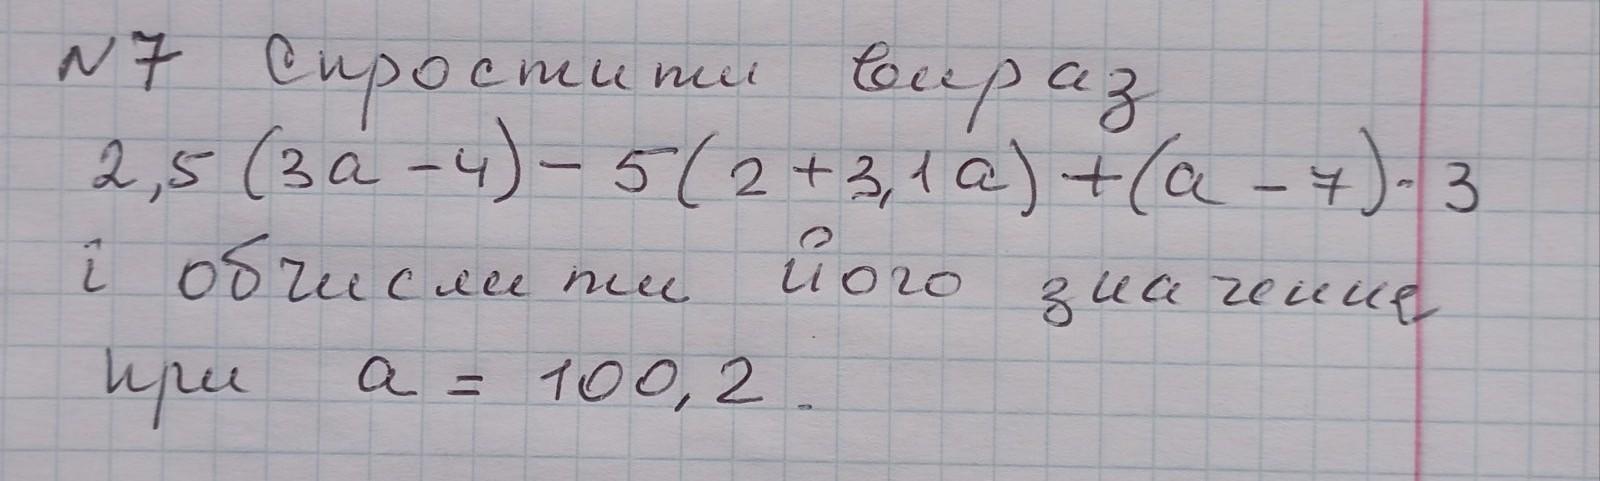 №7 Спростити вираз
2,5(3a-4)-5(2+3,1a)+(a-7)·3
і обчислити його значення
при a=100,2.